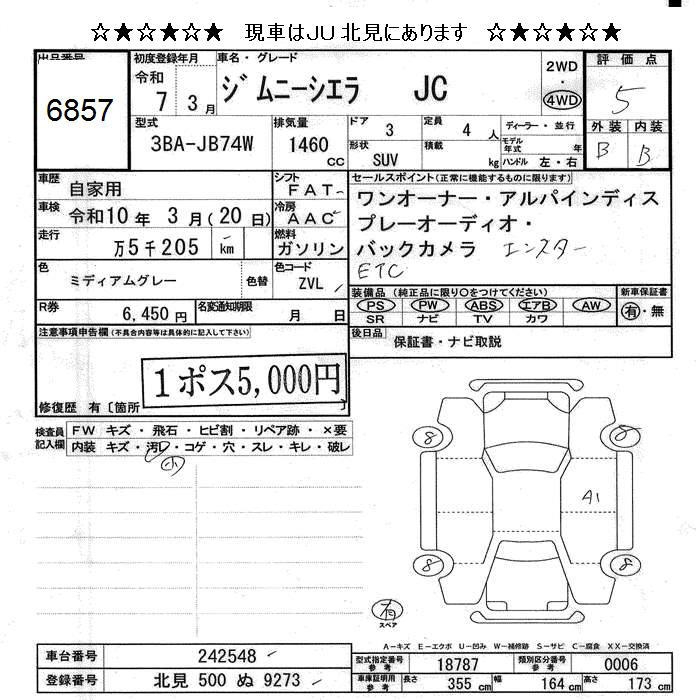 ☆★☆★☆★ 現車はJU北見にあります ☆★☆★☆★
出品番号 6857
初度登録年月 令和 7 3月
車名・グレード ジムニーシエラ JC
2WD・4WD
評価点 5
外装 B 内装 B
型式 3BA-JB74W
排気量 1460 CC
ドア 3 定員 4 人
形状 SUV 積載 kg
ディーラー・並行
モデル年式 年
ハンドル 左・右
車歴 自家用
シフト FAT
車検 令和10年 3月(20日)
冷房 AAC
走行 万5千205 km
燃料 ガソリン
色 ミディアムグレー 色替
色コード ZVL
R券 6,450円
名変通知期限 月 日
セールスポイント(正常に機能するものに限ります)
ワンオーナー・アルパインディス
プレーオーディオ・
バックカメラ エンスター
ETC
装備品(純正品に限り○をつけてください)
PS PW ABS エアB AW
SR ナビ TV カワ
新車保証書 有・無
後日品 保証書・ナビ取説
注意事項申告欄(不具合内容等は具体的に記入して下さい)
1ポス5,000円
修復歴 有〔箇所 〕
検査員記入欄
FW キズ・飛石・ヒビ割・リペア跡・×要
内装 キズ・汚レ・コゲ・穴・スレ・キレ・破レ
小
8 8
A1
8 8
有
スペア
A−キズ E−エクボ U−凹み W−補修跡 S−サビ C−腐食 XX−交換済
車台番号 242548
登録番号 北見 500 ぬ 9273
型式指定番号 参考 18787
類別区分番号 参考 0006
車庫証明用 参考 長さ 355 cm 幅 164 cm 高さ 173 cm